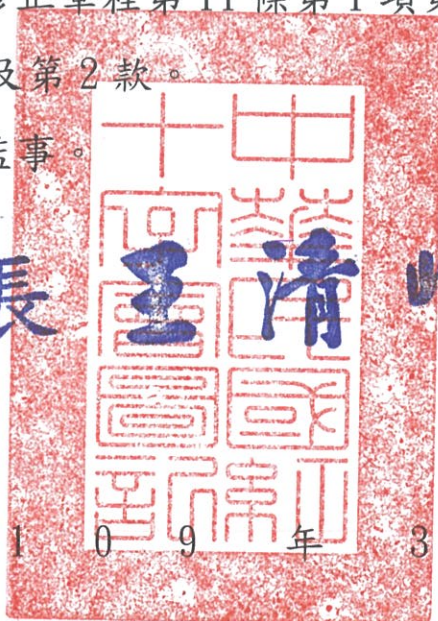 修正章程第 11 條第 1 項
及第 2 款。
監事。
長 王清
中華民國紅
十字會圖記
109 年 3